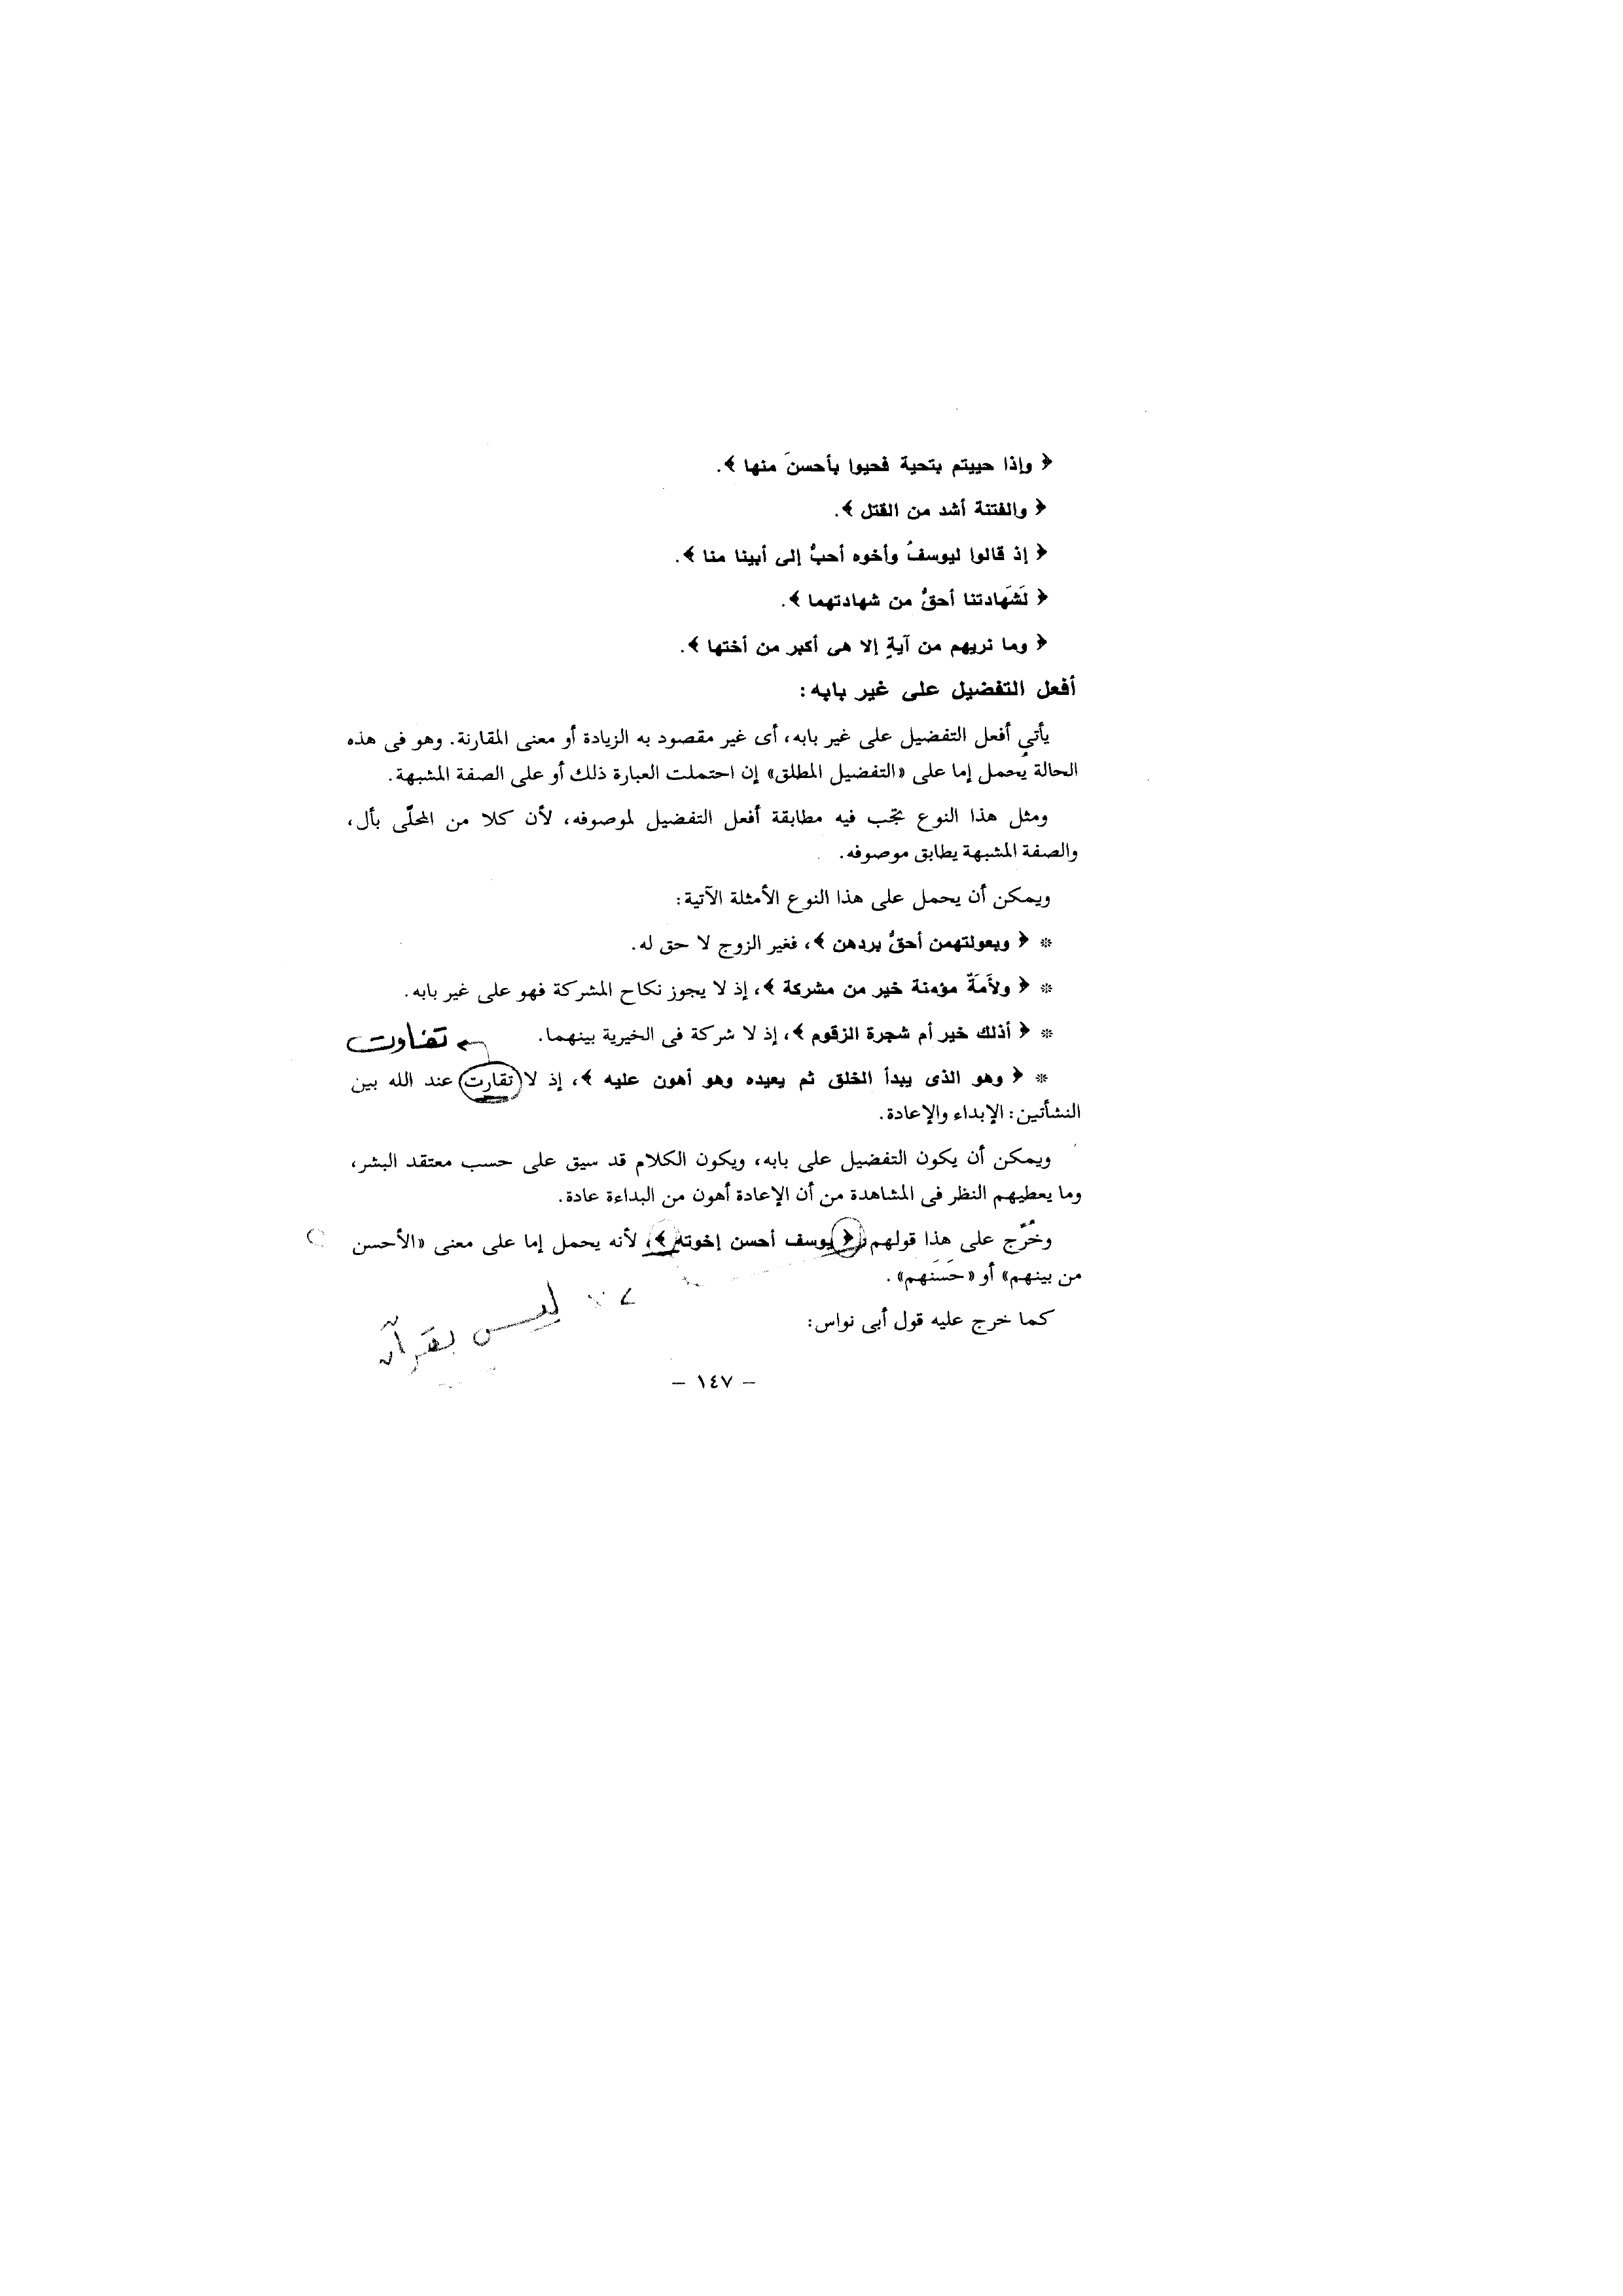 ﴿ وإذا حييتم بتحية فحيوا بأحسنَ منها ﴾.
﴿ والفتنة أشد من القتل ﴾.
﴿ إذ قالوا ليوسفُ وأخوه أحبُّ إلى أبينا منا ﴾.
﴿ لَشَهادتنا أحقُّ من شهادتهما ﴾.
﴿ وما نريهم من آيةٍ إلا هى أكبر من أختها ﴾.
أفعل التفضيل على غير بابه:
يأتى أفعل التفضيل على غير بابه، أى غير مقصود به الزيادة أو معنى المقارنة. وهو فى هذه
الحالة يُحمل إما على «التفضيل المطلق» إن احتملت العبارة ذلك أو على الصفة المشبهة.
ومثل هذا النوع تجب فيه مطابقة أفعل التفضيل لموصوفه، لأن كلا من المحلّى بأل،
والصفة المشبهة يطابق موصوفه.
ويمكن أن يحمل على هذا النوع الأمثلة الآتية:
* ﴿ وبعولتهمن أحقُّ بردهن ﴾، فغير الزوج لا حق له.
* ﴿ ولأَمَةٌ مؤمنة خير من مشركة ﴾، إذ لا يجوز نكاح المشركة فهو على غير بابه.
* ﴿ أذلك خير أم شجرة الزقوم ﴾، إذ لا شركة فى الخيرية بينهما.
تفاوت
* ﴿ وهو الذى يبدأ الخلق ثم يعيده وهو أهون عليه ﴾، إذ لا تقارت عند الله بين
النشأتين: الإبداء والإعادة.
ويمكن أن يكون التفضيل على بابه، ويكون الكلام قد سيق على حسب معتقد البشر،
وما يعطيهم النظر فى المشاهدة من أن الإعادة أهون من البداءة عادة.
وخُرِّج على هذا قولهم ﴿ يوسف أحسن إخوته ﴾، لأنه يحمل إما على معنى «الأحسن
من بينهم» أو «حَسَنهم».
ليس بقرآن
كما خرج عليه قول أبى نواس:
– ١٤٧ –